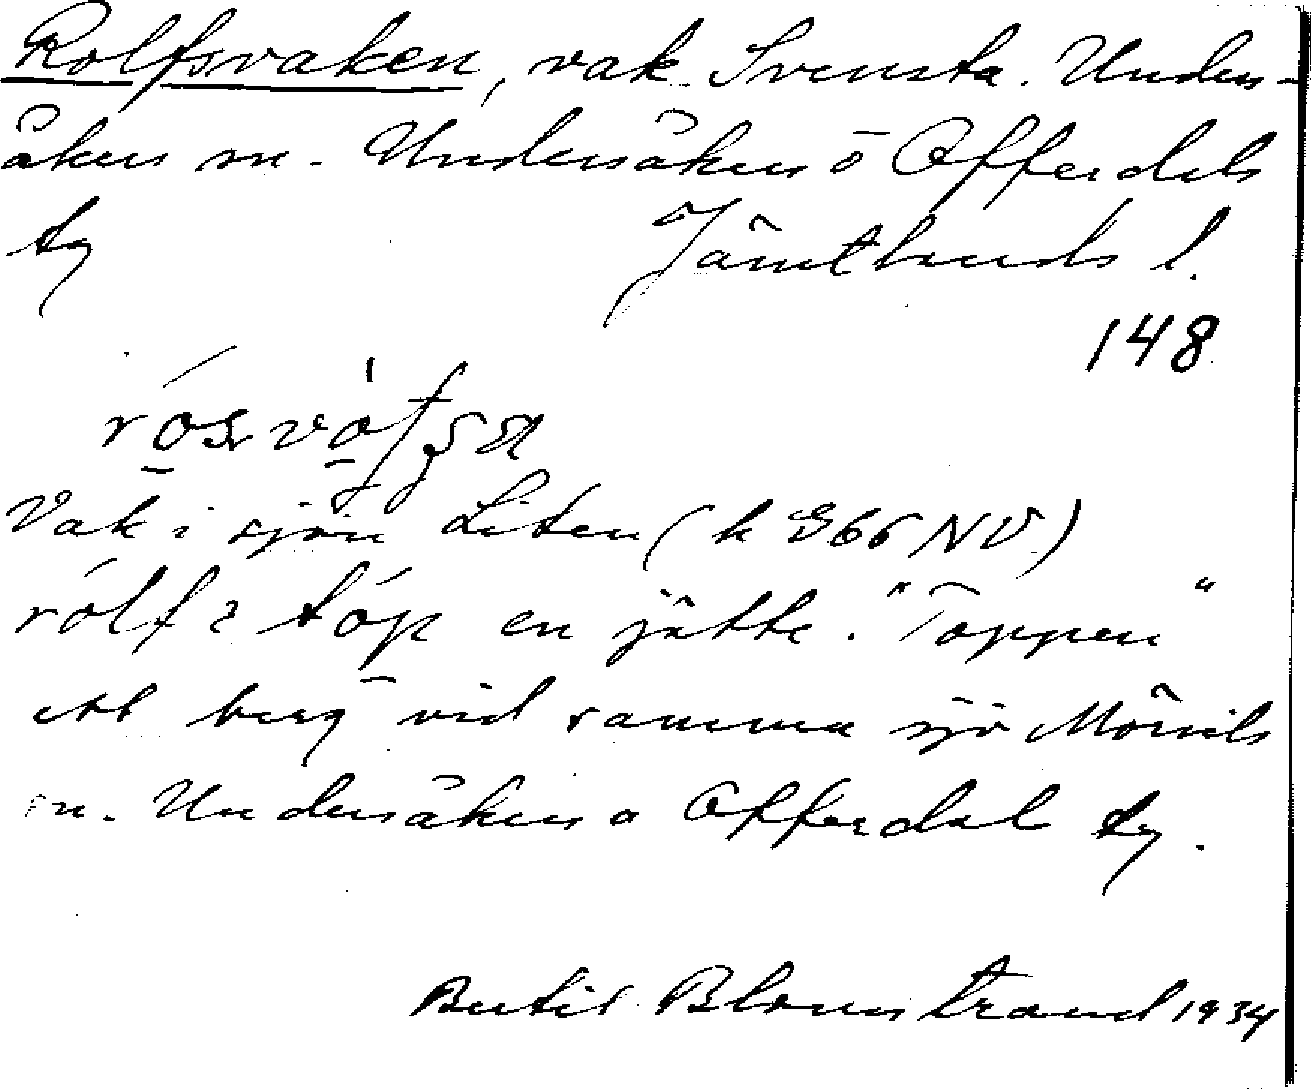 Rolfsvaken, vak. Svensta. Unders-
åkers sn. Undersåkers o Offerdals
tg Jämtlands l.
148
Vak i sjön Liten (k G66 NV)
en jätte. "Toppen"
ett berg vid samma sjö Mörsils
sn. Undersåkers o Offerdal tg.
Bertil Blomstrand 1934